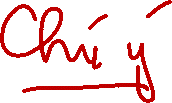 Chú ý